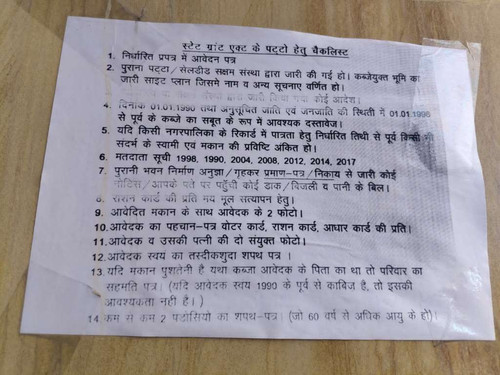 स्टेट ग्रांट एक्ट के पट्टो हेतु चैकलिस्ट
1. निर्धारित प्रपत्र में आवेदन पत्र
2. पुराना पट्टा/सेलडीड सक्षम संस्था द्वारा जारी की गई हो। कब्जेयुक्त भूमि का
जारी साइट प्लान जिसमे नाम व अन्य सूचनाए वर्णित हो।
द्वारा जारी किया गया कोई आदेश।
4. दिनांक 01.01.1990 तथा अनुसूचित जाति एवं जनजाति की स्थिती में 01.01.1996
से पूर्व के कब्जे का सबूत के रूप में आवश्यक दस्तावेज।
5. यदि किसी नगरपालिका के रिकार्ड में पात्रता हेतु निर्धारित तिथी से पूर्व किसी भी
संदर्भ के स्वामी एवं मकान की प्रविष्टि अंकित हो।
6. मतदाता सूची 1998, 1990, 2004, 2008, 2012, 2014, 2017
7. पुरानी भवन निर्माण अनुज्ञा/गृहकर प्रमाण-पत्र/निकाय से जारी कोई
नोटिस/आपके पते पर पहुँची कोई डाक/बिजली व पानी के बिल।
8. राशन कार्ड की प्रति मय मूल सत्यापन हेतु।
9. आवेदित मकान के साथ आवेदक के 2 फोटो।
10. आवेदक का पहचान-पत्र वोटर कार्ड, राशन कार्ड, आधार कार्ड की प्रति।
11. आवेदक व उसकी पत्नी की दो संयुक्त फोटो।
12. आवेदक स्वयं का तस्दीकशुदा शपथ पत्र ।
13. यदि मकान पुशतेनी है यथा कब्जा आवेदक के पिता का था तो परिवार का
सहमति पत्र। (यदि आवेदक स्वयं 1990 के पूर्व से काबिज है, तो इसकी
आवश्यकता नही है।)
14. कम से कम 2 पडोसियो का शपथ-पत्र। (जो 60 वर्ष से अधिक आयु के हों)।